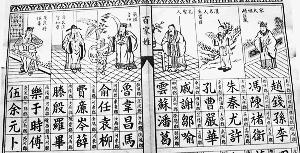 百家姓
趙錢孫李
馮陳褚衛
朱秦尤許
孔曹嚴華
戚謝鄒喻
雲蘇潘葛
魯韋昌馬
俞任袁柳
滕殷羅畢
費廉岑薛
樂于時傅
伍余元卜